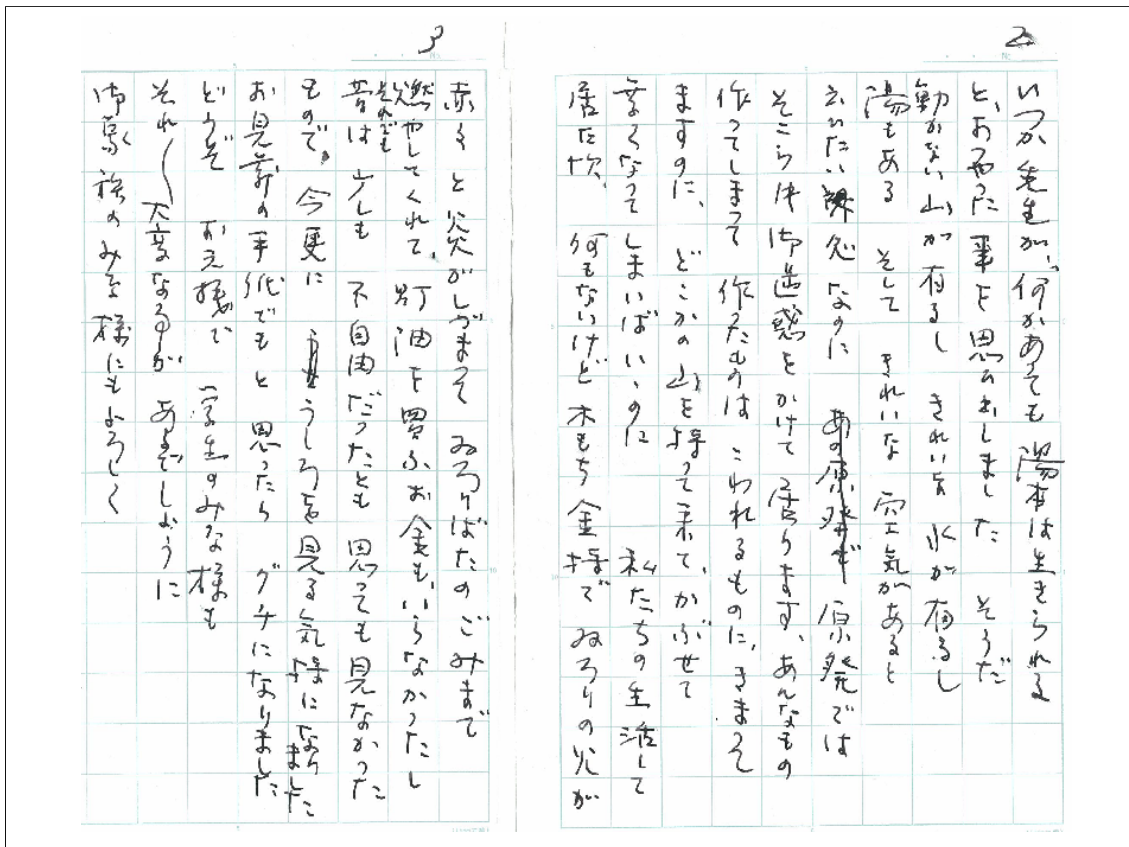 2
いつか先生が、何があっても湯本は生きられる
と、おっしゃった事を思い出しました そうだ
動かない山が有るし きれいな 水が有るし
湯もある そして きれいな 空気があると
云いたい 処なのに 原発では
そこら中 御迷惑をかけて 居ります、あんなもの
作ってしまって 作ったものは こわれるものに、きまって
ますのに、どこかの山を 持って来て、かぶせて
なくなって しまいばいゝのに 私たちの生活して
居た頃、何もないけど 木もち金持で ゐろりの火が
3
赤々と炎がしづまって ゐろりばたの ごみまで
燃やしてくれて、灯油を買ふお金も、いらなかったし
それでも
昔は 少しも 不自由だったとも 思っても見なかった
もので。 今更に うしろを見る気持になりました
お見舞の手紙でもと 思ったら グチになりました
どうぞ お元気で 学生のみな様も
それ〱 大変なる事が あるでしように
御家族のみな様にもよろしく